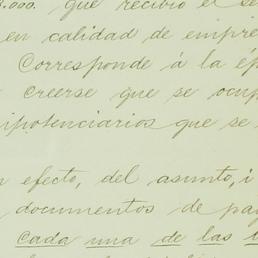 3.000. que recibió el se
en calidad de empre
Corresponde á la ép
creerse que se ocup
ipotenciarios que se
n efecto, del asunto, i
documentos de pag
cada una de las